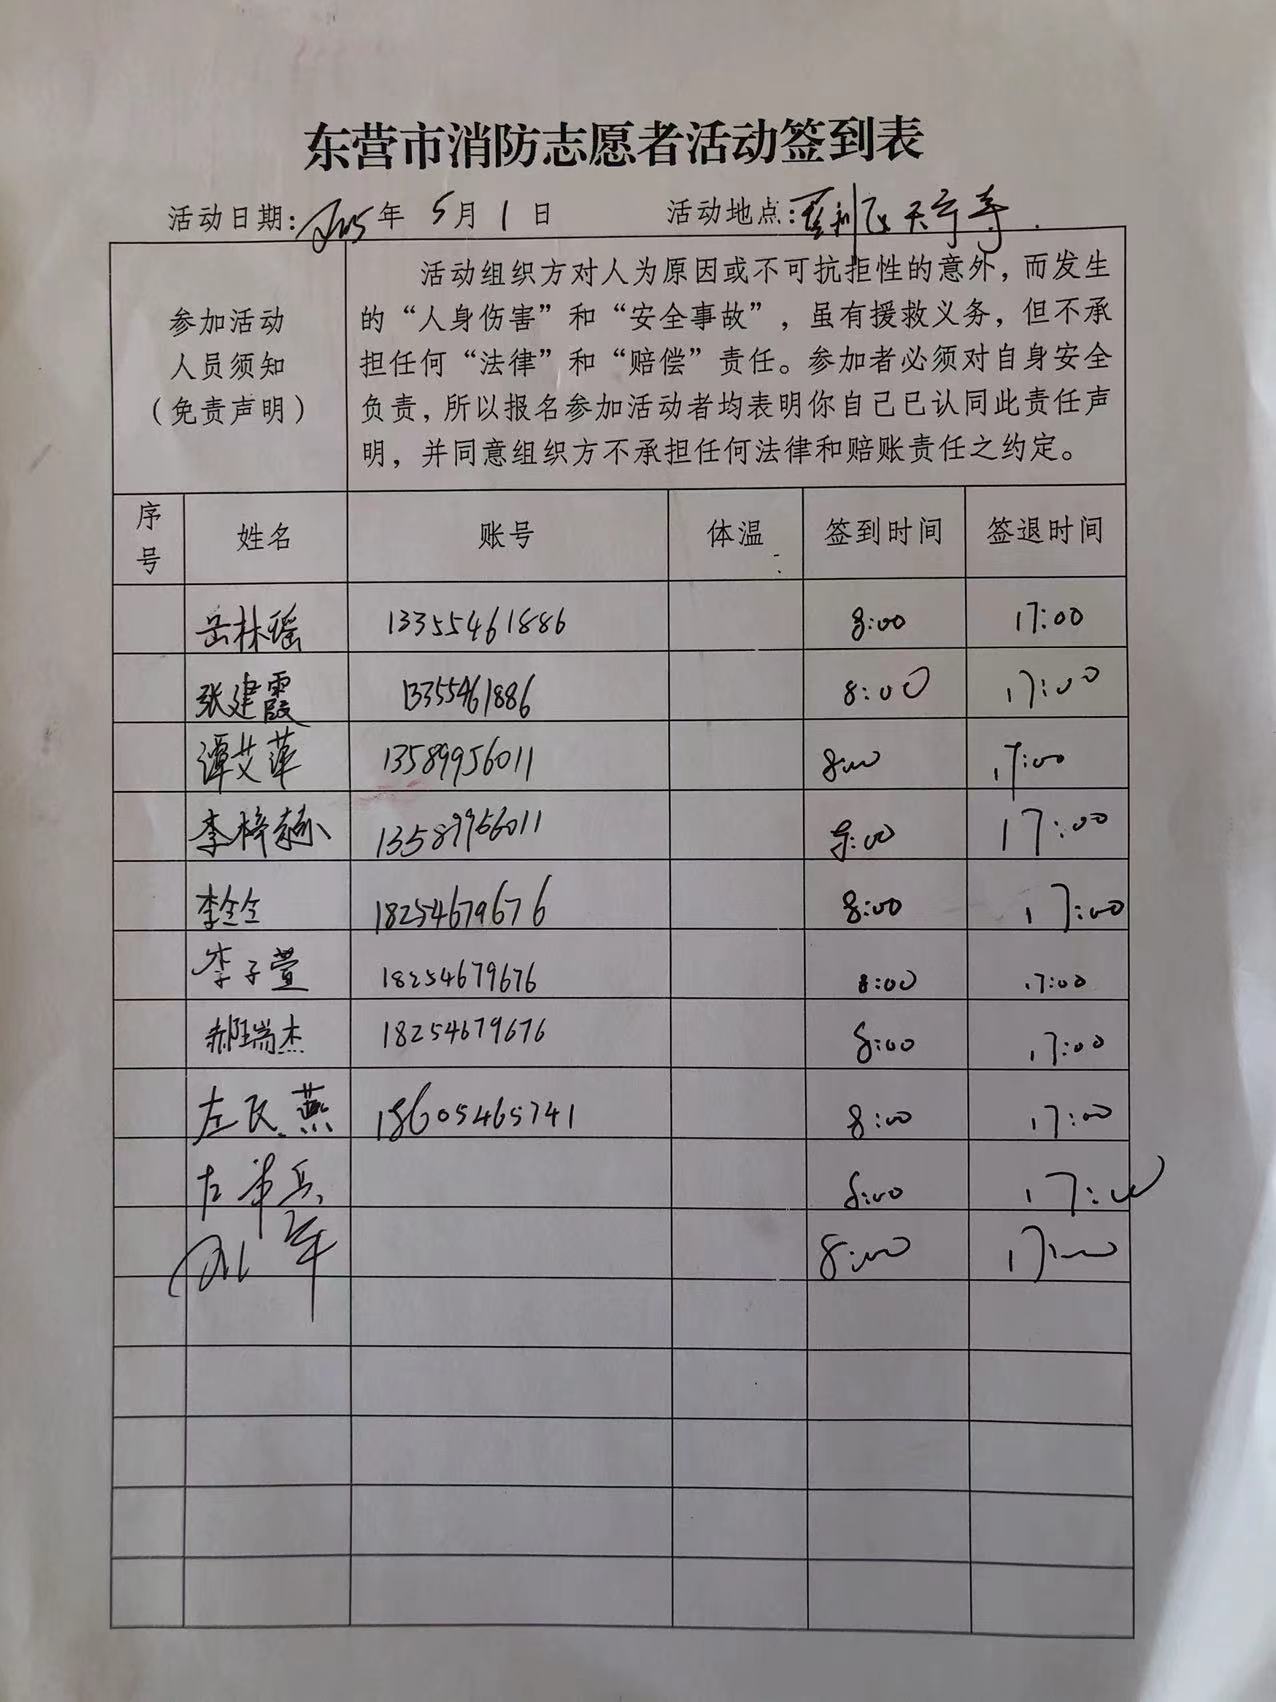 东营市消防志愿者活动签到表
活动日期：2025年 5月 1日 活动地点：垦利区天宁寺
参加活动
人员须知
（免责声明）
活动组织方对人为原因或不可抗拒性的意外，而发生
的“人身伤害”和“安全事故”，虽有援救义务，但不承
担任何“法律”和“赔偿”责任。参加者必须对自身安全
负责，所以报名参加活动者均表明你自己已认同此责任声
明，并同意组织方不承担任何法律和赔账责任之约定。
序号 姓名 账号 体温 签到时间 签退时间
岳林瑶 13355461886 8:00 17:00
张建霞 13355461886 8:00 17:00
谭艾萍 13589956011 8:00 17:00
李梓 13589956011 8:00 17:00
李全全 18254679676 8:00 17:00
李子萱 18254679676 8:00 17:00
郝瑞杰 18254679676 8:00 17:00
左民燕 18605465741 8:00 17:00
左军兵 8:00 17:00
8:00 17:00